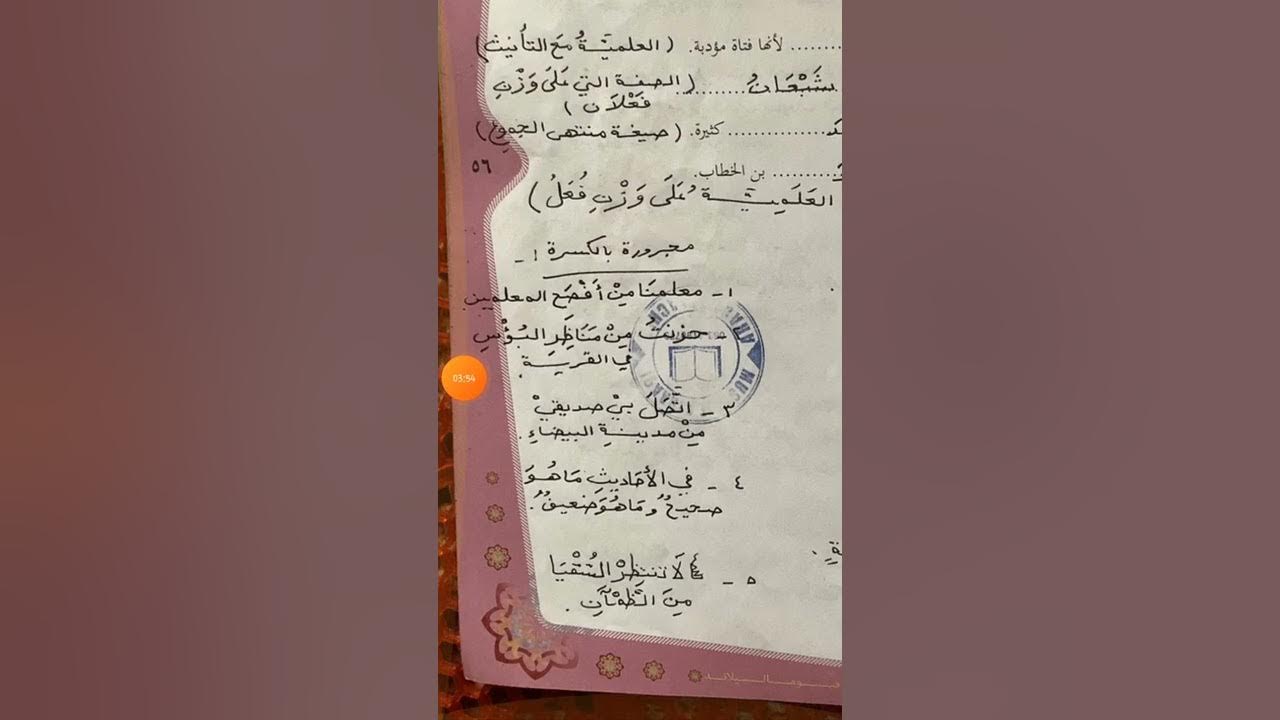 ......... لأنها فتاة مؤدبة. (العلميّةُ مَعَ التأنيث)
شَبْعَانُ .......... (الصفة التي عَلَى وَزْنِ
فَعْلَان)
............... كثيرة. (صيغة منتهى الجموع)
......... بن الخطاب.
٥٦
العَلَمِيَّة عَلَى وَزْنِ فُعَلُ)
مجرورة بالكسرة :-
١- معلمنا مِنْ أَفْصَحِ المعلمين
- حزنتُ مِنْ مَنَاظِرِ البُؤْسِ
في القرية.
٣- اتَّصَلَ بِيْ صديقيْ
مِنْ مدينةِ البيضاءِ.
٤- في الأحَاديثِ مَا هُوَ
صحيحٌ ومَا هُوَ ضعيفٌ.
٥- لَا تنتظِرْ السُّقْيَا
مِنَ الظَّمْآنِ.
03:54